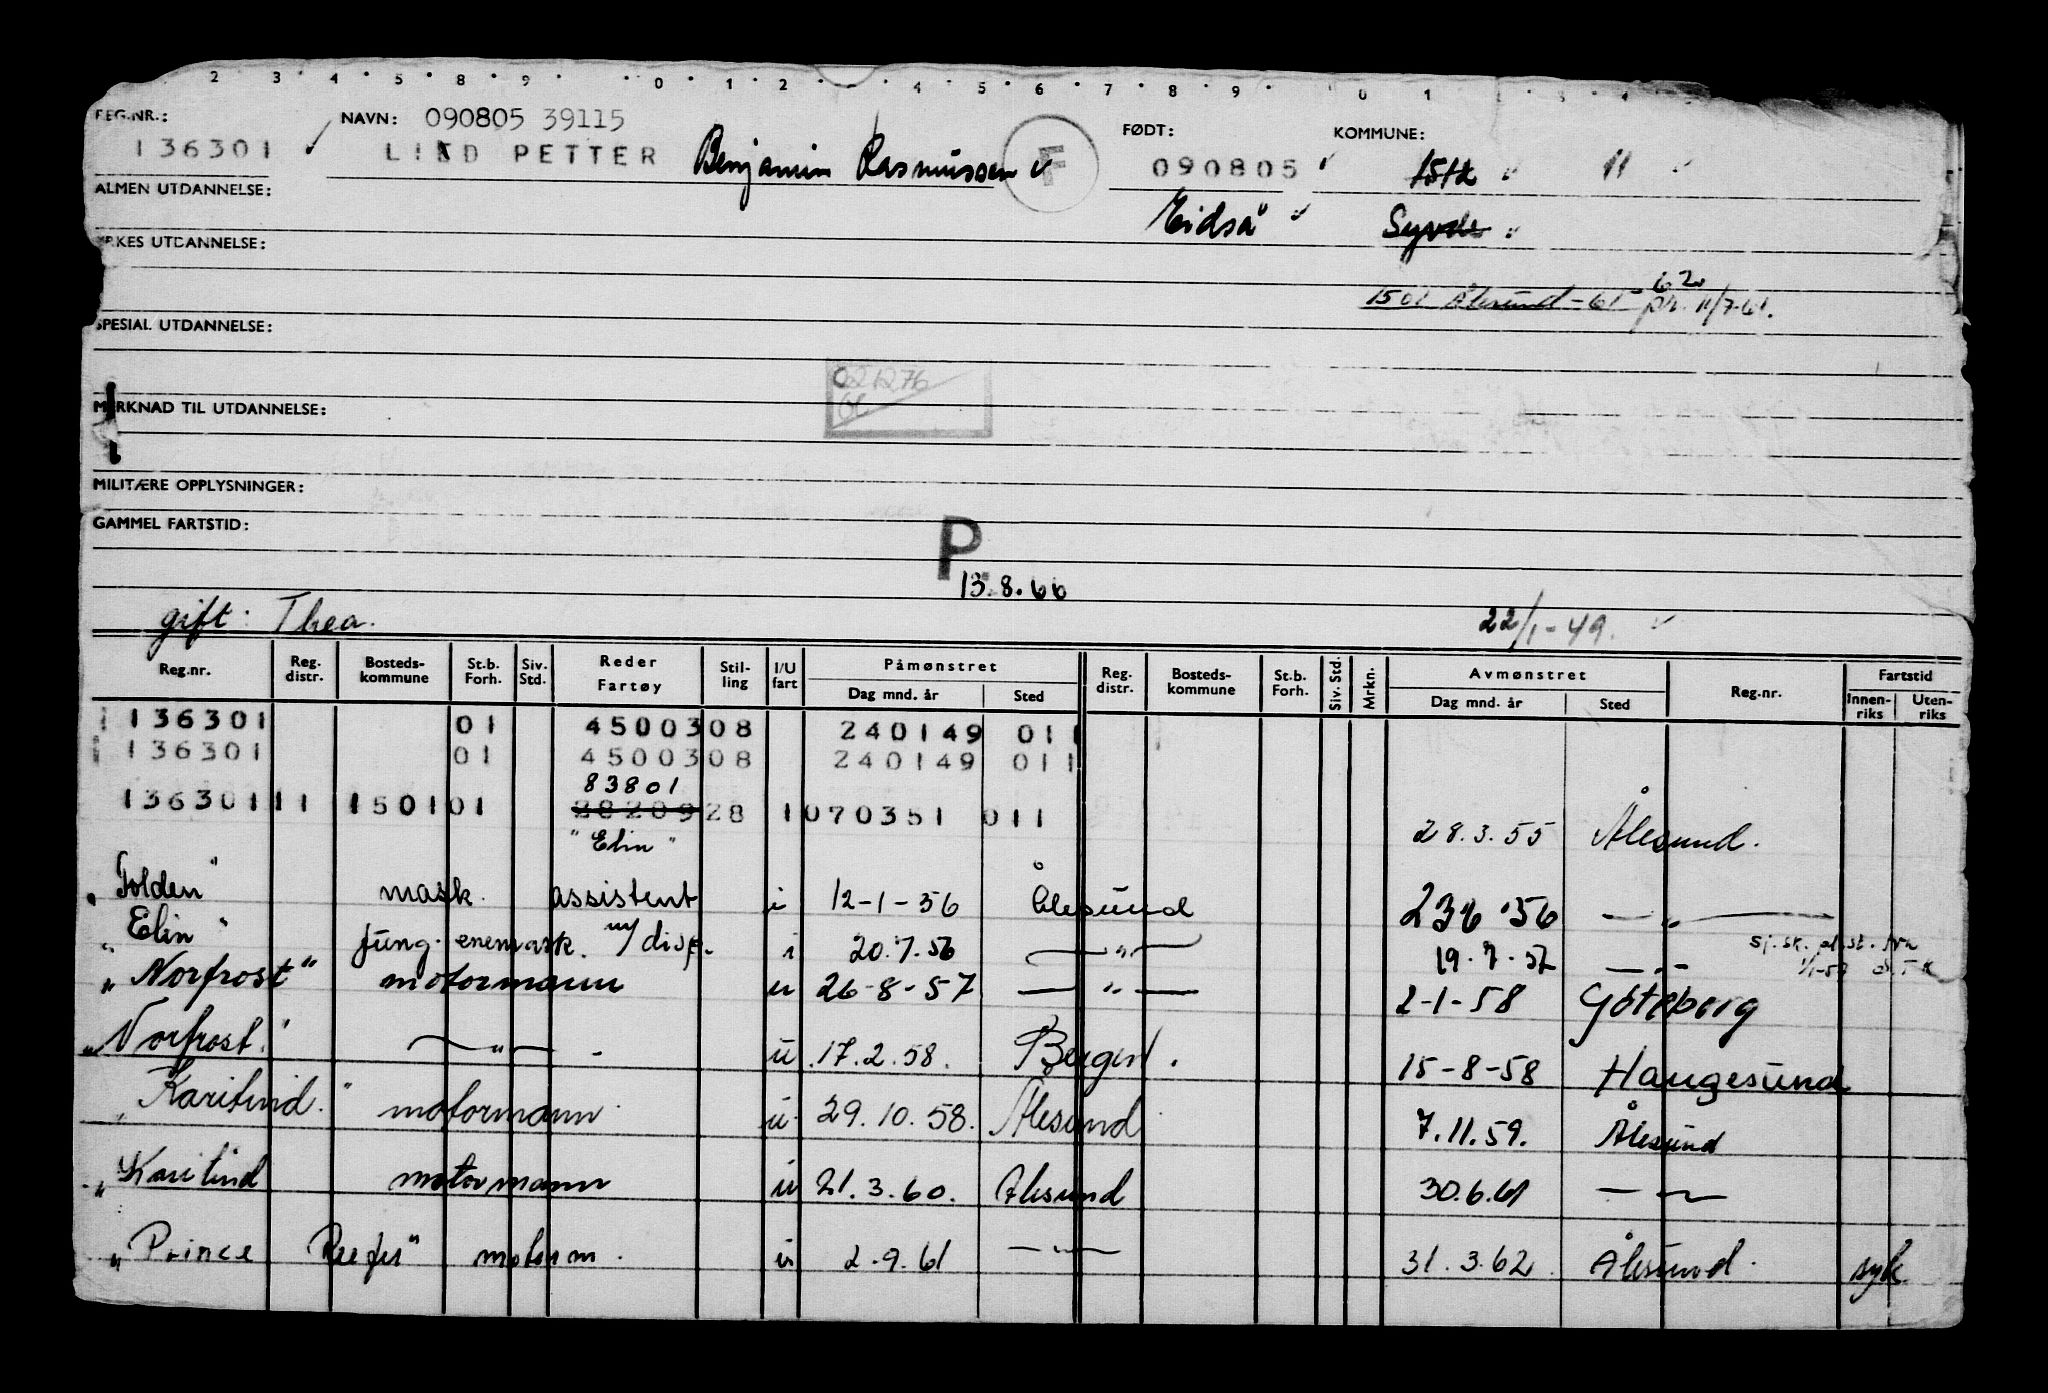 2 · 3 · 4 · 5 · 8 · 9 · · 0 · 1 · 2 · · 4 · 5 · 6 · 7 · 8 · 9 · · 0 1
REG.NR.: NAVN: 090805 39115 FØDT: KOMMUNE:
136301 LIND PETTER Benjamin Rasmussen F 090805 11
ALMEN UTDANNELSE: Eidså Syvde
YRKES UTDANNELSE:
62
1501 Ålesund - 61 - pr. 11/7-61.
SPESIAL UTDANNELSE:
021276
MERKNAD TIL UTDANNELSE:
MILITÆRE OPPLYSNINGER:
GAMMEL FARTSTID:
P
13.8.66
gift: Thea. 22/1-49.
Reg.nr. Reg. distr. Bosteds-kommune St.b. Forh. Siv. Std. Reder Fartøy Stil-ling I/U fart Påmønstret Dag mnd. år Sted Reg. distr. Bosteds-kommune St.b. Forh. Siv. Std. Mrkn. Avmønstret Dag mnd. år Sted Reg.nr. Fartstid Innen-riks Uten-riks
136301 01 4500308 240149 011
136301 01 4500308 240149 011
83801
136301 11 1501 01 28209 28 1 070351 011
"Elin" 28.3.55 Ålesund.
"Golden" mask. assistent i 12-1-56 Ålesund 236.56 — " —
"Elin" Jung. enemask. m/disp. i 20.7.56 — " — 19.7.57 — " — sj.sk. pl.st. fra
"Norfrost" motormann u 26-8-57 — " — 2-1-58 Göteborg
"Norfrost" — " — u 17.2.58. Bergen. 15-8-58 Haugesund
"Karitind." motormann u 29.10.58. Ålesund 7.11.59. Ålesund
"Karitind motormann u 21.3.60. Ålesund 30.6.61 — " —
"Prince Reefer" motorm. u 2.9.61 — " — 31.3.62 Ålesund. syk